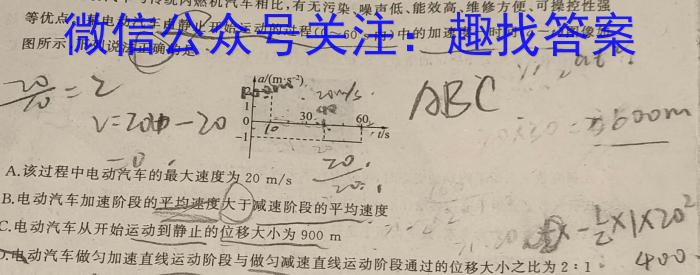 汽车与传统内燃机汽车相比,有无污染、噪声低、能效高、维修方便、可操控性强
等优点。某电动汽车由静止开始运动的过程(0~60 s内)中的加速度
微信公众号关注：趣找答案
图所示,下列说法正确的是
20/10 = 2
a/(m·s⁻²)
2
1
0
-1
10
30
60
t/s
20m/s
ABC
600m
A.该过程中电动汽车的最大速度为 20 m/s
B.电动汽车加速阶段的平均速度大于减速阶段的平均速度
C.电动汽车从开始运动到静止的位移大小为 900 m
D.电动汽车做匀加速直线运动阶段与做匀减速直线运动阶段通过的位移大小之比为 2：1
400